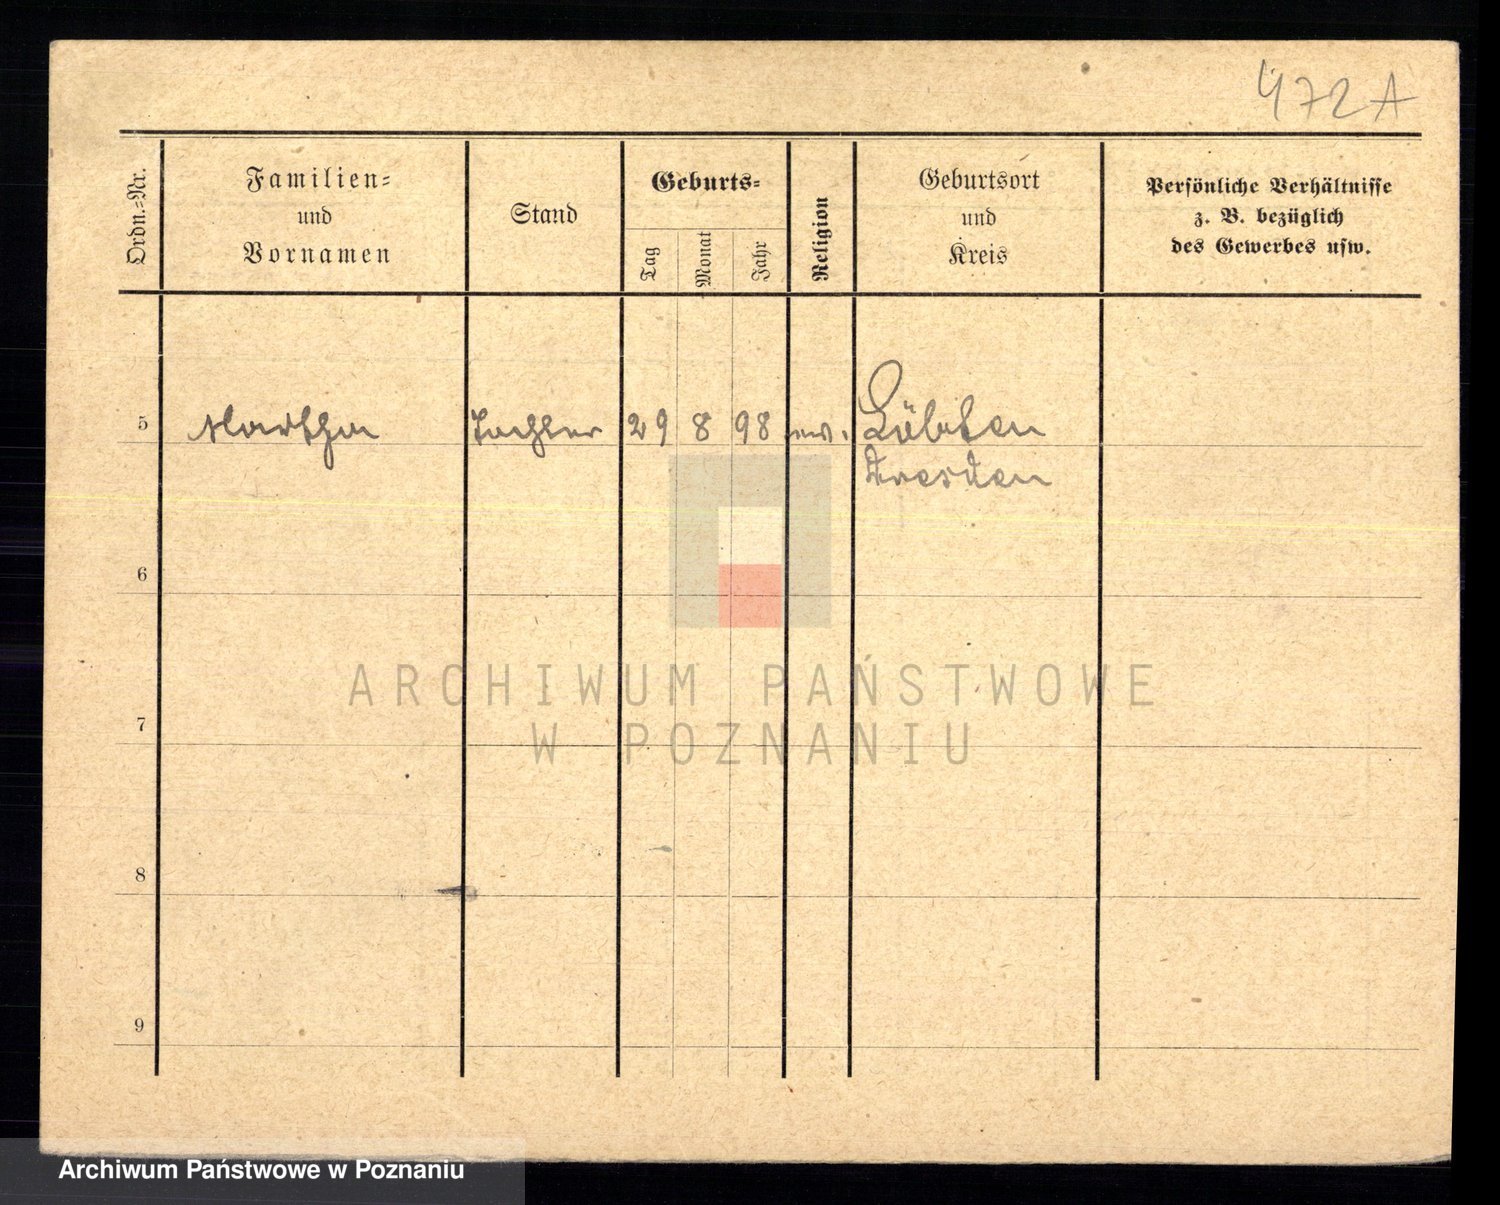 472A
Ordn.-Nr.
Familien-
und
Vornamen
Stand
Geburts-
Tag
Monat
Jahr
Religion
Geburtsort
und
Kreis
Persönliche Verhältnisse
z. B. bezüglich
des Gewerbes usw.
5 Martha Tochter 29 8 98 ev.
Dresden
6
7
8
9
ARCHIWUM PAŃSTWOWE
W POZNANIU
Archiwum Państwowe w Poznaniu